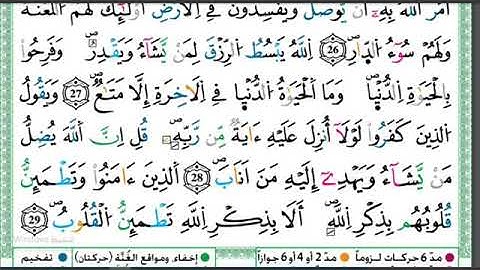 أَمَرَ اَللَّهُ بِهِۦٓ أَنْ يُّوصَلَ وَيُفْسِدُونَ فِے اِلَارْضِ أُوْلَٰٓئِكَ لَهُمُ اُللَّعْنَةُ
وَلَهُمْ سُوٓءُ اُلدّ۪ارِۖ 26 اِللَّهُ يَبْسُطُ اُلرِّزْقَ لِمَنْ يَّشَآءُ وَيَقْدِرُۖ وَفَرِحُواْ
بِالْحَيَوٰةِ اِلدُّنْي۪اۖ وَمَا اَلْحَيَوٰةُ اُلدُّنْي۪ا فِے اِلَاخِرَةِ إِلَّا مَتَٰعٌۖ 27 وَيَقُولُ
اُلذِينَ كَفَرُواْ لَوْلَآ أُنزِلَ عَلَيْهِ ءَايَةٌ مِّن رَّبِّهِۦۖ قُلِ اِنَّ اَللَّهَ يُضِلُّ
مَنْ يَّشَآءُ وَيَهْدِےٓ إِلَيْهِ مَنَ اَنَابَۖ 28 اَلذِينَ ءَامَنُواْ وَتَطْمَئِنُّ
قُلُوبُهُم بِذِكْرِ اِللَّهِۖ أَلَا بِذِكْرِ اِللَّهِ تَطْمَئِنُّ اُلْقُلُوبُۖ 29
مدّ 6 حركات لزوماً مدّ 2 أو 4 أو 6 جوازاً إخفاء، ومواقع الغُنَّة (حركتان) تفخيم